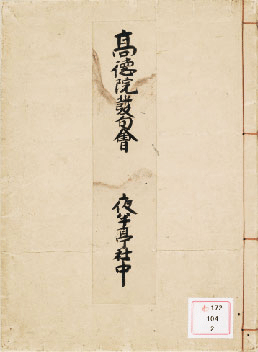 高徳院發句會
夜半亭社中
172
104
2